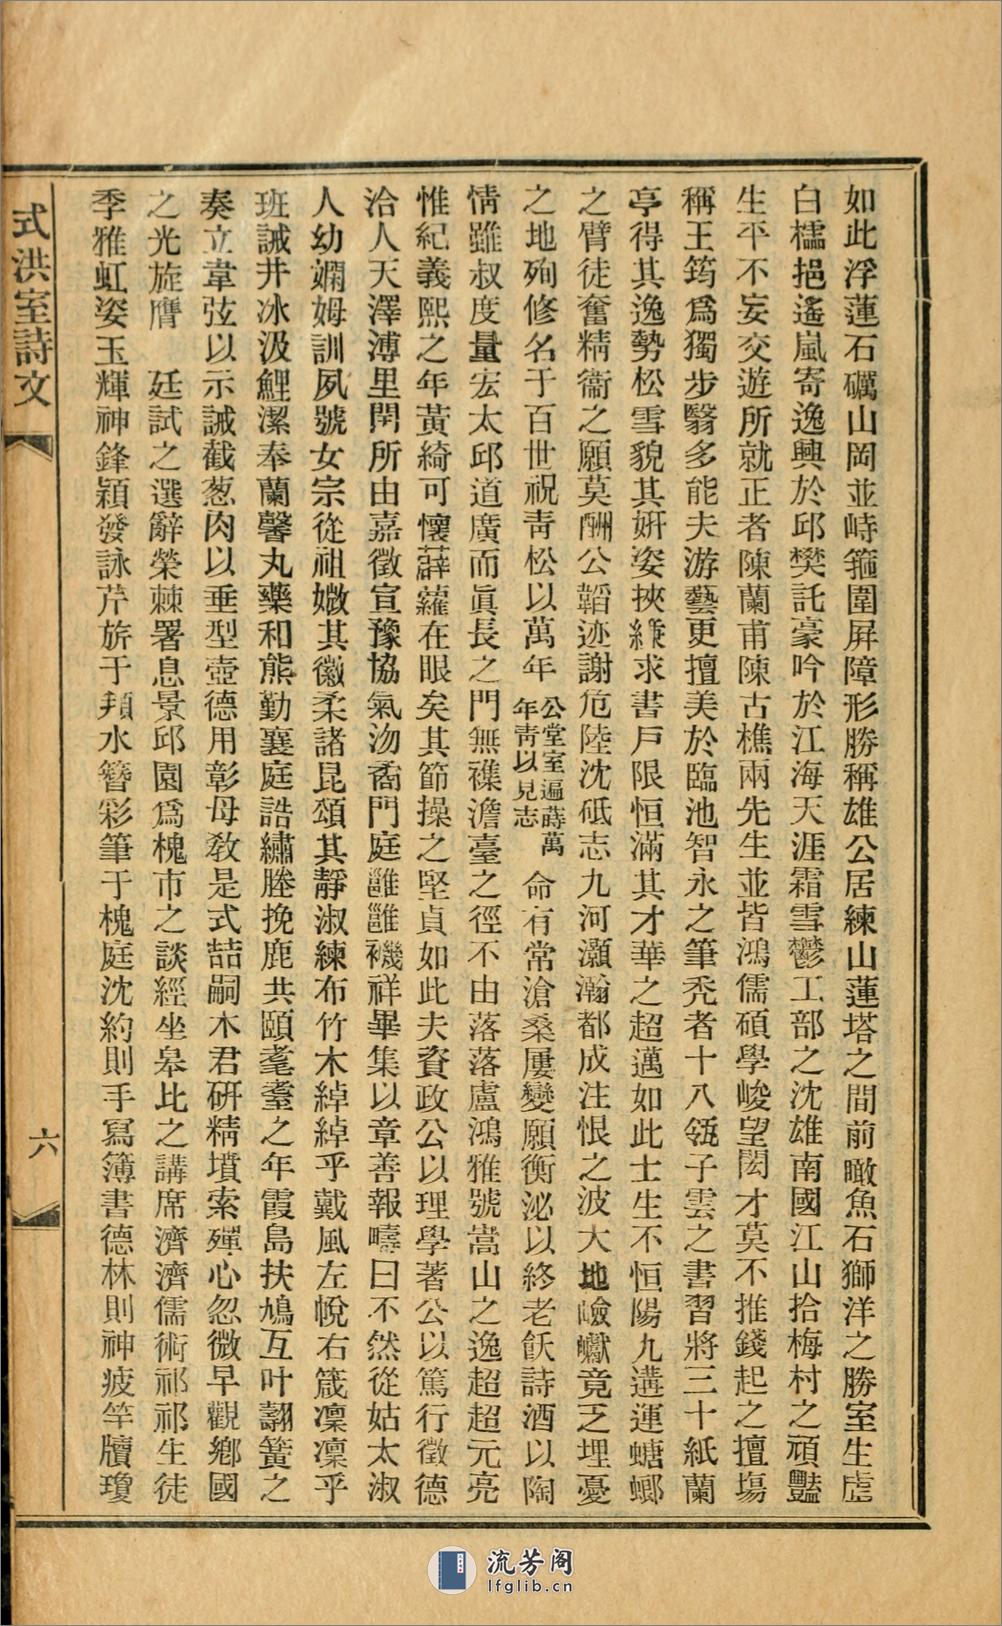 如此浮蓮石礪山岡並峙箍圍屏障形勝稱雄公居練山蓮塔之間前瞰魚石獅洋之勝室生虛
白檽挹遙嵐寄逸興於邱樊託豪吟於江海天涯霜雪鬱工部之沈雄南國江山拾梅村之頑豔
生平不妄交遊所就正者陳蘭甫陳古樵兩先生並皆鴻儒碩學峻望閎才莫不推錢起之擅場
稱王筠爲獨步翳多能夫游藝更擅美於臨池智永之筆禿者十八瓻子雲之書習將三十紙蘭
亭得其逸勢松雪貌其妍姿挾縑求書戶限恒滿其才華之超邁如此士生不恒陽九遘運螗螂
之臂徒奮精衞之願莫酬公韜迹謝危陸沈砥志九河灝瀚都成注恨之波大地嶮巇竟乏埋憂
之地殉修名于百世祝靑松以萬年公堂室遍蒔萬年靑以見志命有常滄桑屢變願衡泌以終老飫詩酒以陶
情雖叔度量宏太邱道廣而眞長之門無襍澹臺之徑不由落落盧鴻雅號嵩山之逸超超元亮
惟紀義熙之年黃綺可懷薜蘿在眼矣其節操之堅貞如此夫資政公以理學著公以篤行徵德
洽人天澤溥里閈所由嘉徵宣豫協氣沕矞門庭雝雝禨祥畢集以章善報疇曰不然從姑太淑
人幼嫻姆訓夙號女宗從祖媺其徽柔諸昆頌其靜淑練布竹木綽綽乎戴風左帨右箴凜凜乎
班誡井冰汲鯉潔奉蘭馨丸藥和熊勤襄庭誥繡塍挽鹿共頤耄耋之年霞島扶鳩互叶翿簧之
奏立韋弦以示誡截葱肉以垂型壺德用彰母敎是式喆嗣木君硏精墳索殫心忽微早觀鄕國
之光旋膺　廷試之選辭榮棘署息景邱園爲槐市之談經坐皋比之講席濟濟儒術祁祁生徒
季雅虹姿玉輝神鋒穎發詠芹旂于頖水簪彩筆于槐庭沈約則手寫簿書德林則神疲竿牘瓊
式洪室詩文
六
流芳阁
lfglib.cn